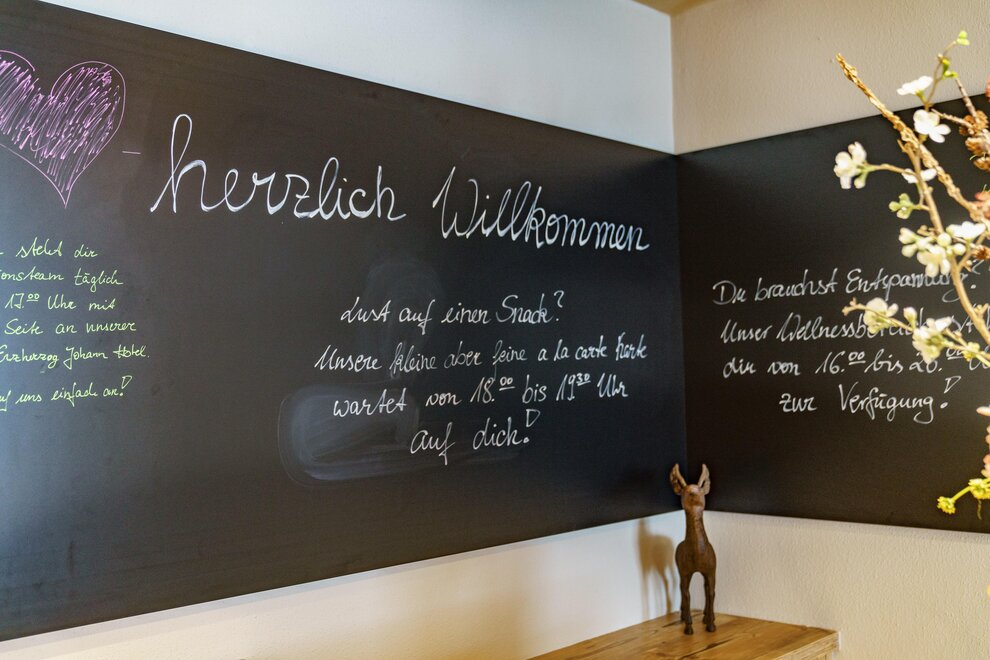 herzlich Willkommen
steht dir
täglich
17.00 Uhr mit
Seite an unserer
Erzherzog Johann Hotel.
uns einfach an!
Lust auf einen Snack?
Unsere kleine aber feine a la carte Karte
wartet von 18.00 bis 19.30 Uhr
auf dich!
Du brauchst Entspannung?
Unser Wellnessbereich
dir von 16.00 bis
zur Verfügung!